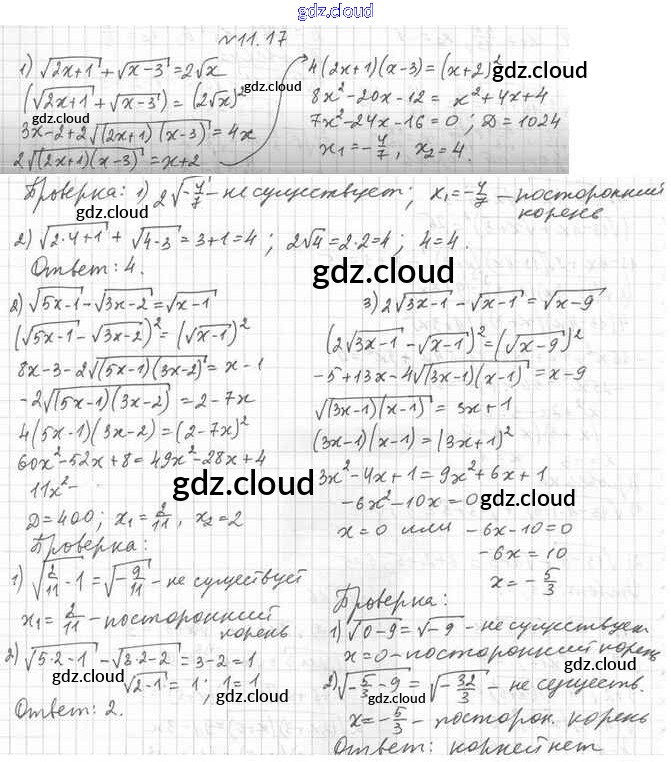 gdz.cloud
№11.17
1) √(2x+1) + √(x-3) = 2√x
(√(2x+1) + √(x-3)) = (2√x)²
gdz.cloud
3x-2+2√((2x+1)(x-3)) = 4x
gdz.cloud
2√((2x+1)(x-3)) = x+2
4(2x+1)(x-3) = (x+2)²
gdz.cloud
8x²-20x-12 = x²+4x+4
7x²-24x-16=0; D=1024
x₁=-4/7, x₂=4.
gdz.cloud
Проверка: 1) 2√(-4/7) - не существует; x₁=-4/7 - посторонний
корень
gdz.cloud
gdz.cloud
2) √(2·4+1) + √(4-3) = 3+1=4; 2√4=2·2=4; 4=4.
Ответ: 4.
gdz.cloud
2) √(5x-1) - √(3x-2) = √(x-1)
(√(5x-1) - √(3x-2))² = (√(x-1))²
8x-3-2√((5x-1)(3x-2)) = x-1
-2√((5x-1)(3x-2)) = 2-7x
4(5x-1)(3x-2) = (2-7x)²
60x²-52x+8=49x²-28x+4
11x²-
gdz.cloud
D=400; x₁=2/11, x₂=2
Проверка:
1) √(2/11-1) = √(-9/11) - не существует
x₁=2/11 - посторонний
корень
2) √(5·2-1) - √(3·2-2) = 3-2=1
√(2-1) = 1; 1=1
gdz.cloud
Ответ: 2.
3) 2√(3x-1) - √(x-1) = √(x-9)
(2√(3x-1) - √(x-1))² = (√(x-9))²
-5+13x-4√((3x-1)(x-1)) = x-9
√((3x-1)(x-1)) = 3x+1
gdz.cloud
(3x-1)(x-1) = (3x+1)²
3x²-4x+1=9x²+6x+1
-6x²-10x=0
gdz.cloud
x=0 или -6x-10=0
-6x=10
x=-5/3
Проверка:
gdz.cloud
1) √(0-9) = √(-9) - не существует
x=0 - посторонний корень
gdz.cloud
2) √(-5/3-9) = √(-32/3) - не существ.
x=-5/3 - посторон. корень
Ответ: корней нет
gdz.cloud